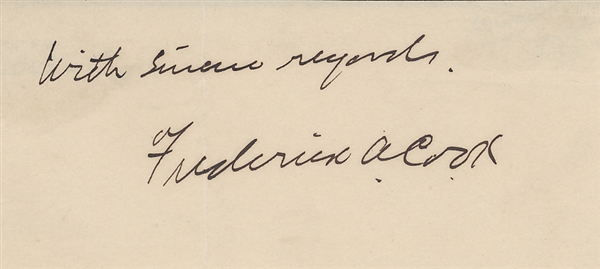 With sincere regards.
Frederick A. Cook